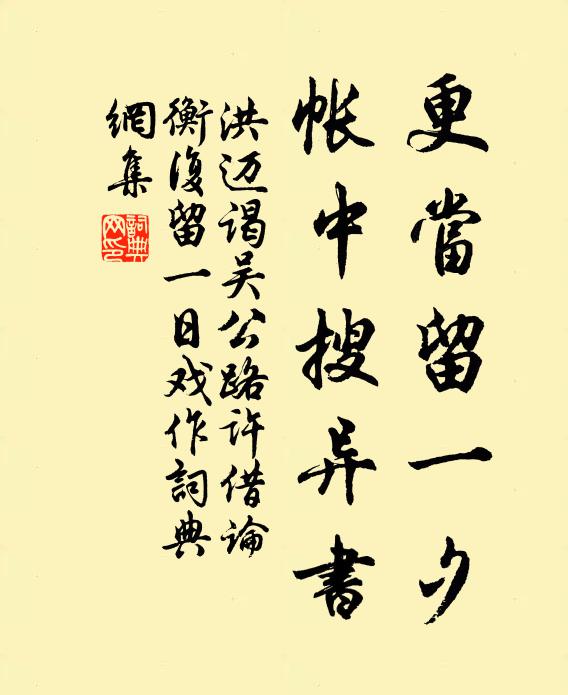 更當留一夕
帐中搜异書
洪迈谒吴公路许借論
衡復留一日戏作詞典
網集
詞典網印